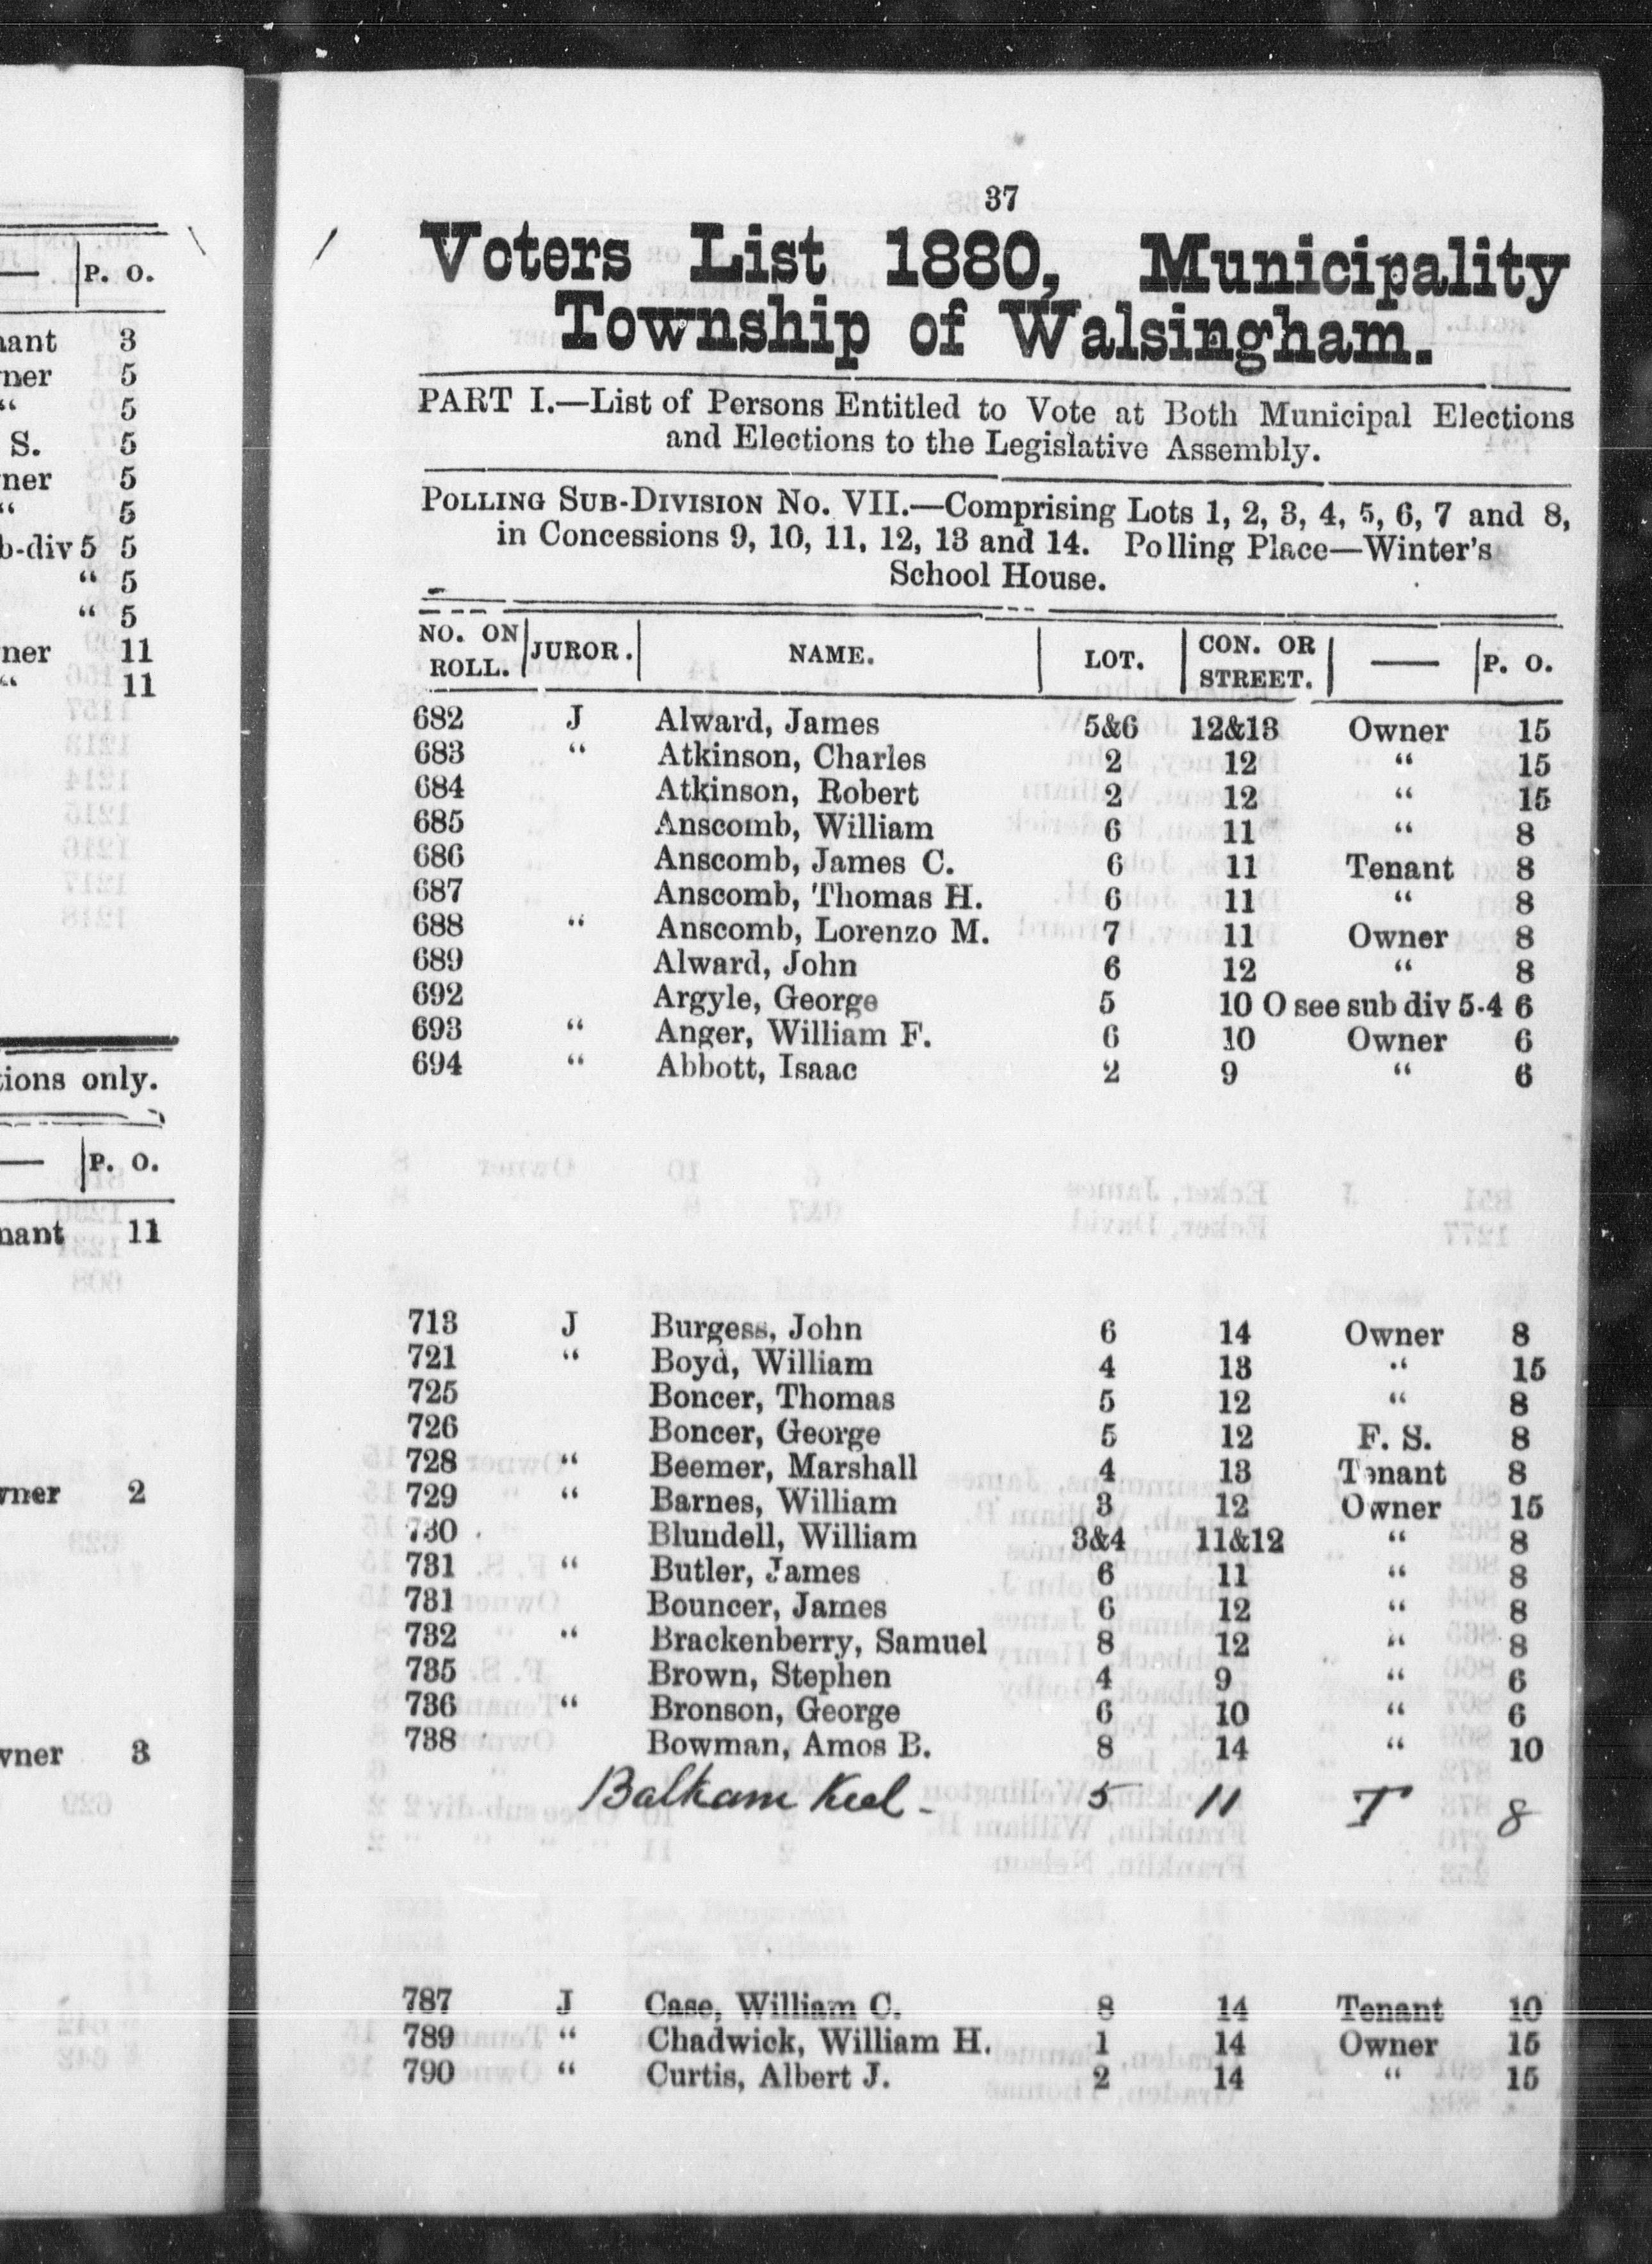 P. O.
nant 3
ner 5
“ 5
S. 5
ner 5
“ 5
b-div 5 5
“ 5
“ 5
ner 11
“ 11
tions only.
P. O.
nant 11
wner 2
wner 3
37
Voters List 1880, Municipality
Township of Walsingham.
PART I.—List of Persons Entitled to Vote at Both Municipal Elections
and Elections to the Legislative Assembly.
POLLING SUB-DIVISION NO. VII.—Comprising Lots 1, 2, 3, 4, 5, 6, 7 and 8,
in Concessions 9, 10, 11, 12, 13 and 14. Polling Place—Winter's
School House.
NO. ON ROLL. JUROR. NAME. LOT. CON. OR STREET. —— P. O.
682 J Alward, James 5&6 12&13 Owner 15
683 “ Atkinson, Charles 2 12 “ 15
684 Atkinson, Robert 2 12 “ 15
685 Anscomb, William 6 11 “ 8
686 Anscomb, James C. 6 11 Tenant 8
687 Anscomb, Thomas H. 6 11 “ 8
688 “ Anscomb, Lorenzo M. 7 11 Owner 8
689 Alward, John 6 12 “ 8
692 Argyle, George 5 10 O see sub div 5-4 6
693 “ Anger, William F. 6 10 Owner 6
694 “ Abbott, Isaac 2 9 “ 6
713 J Burgess, John 6 14 Owner 8
721 “ Boyd, William 4 13 “ 15
725 Boncer, Thomas 5 12 “ 8
726 Boncer, George 5 12 F. S. 8
728 “ Beemer, Marshall 4 13 Tenant 8
729 “ Barnes, William 3 12 Owner 15
730 Blundell, William 3&4 11&12 “ 8
731 “ Butler, James 6 11 “ 8
731 Bouncer, James 6 12 “ 8
732 “ Brackenberry, Samuel 8 12 “ 8
735 Brown, Stephen 4 9 “ 6
736 “ Bronson, George 6 10 “ 6
738 Bowman, Amos B. 8 14 “ 10
Balkam 5 11 T 8
787 J Case, William C. 8 14 Tenant 10
789 “ Chadwick, William H. 1 14 Owner 15
790 “ Curtis, Albert J. 2 14 “ 15